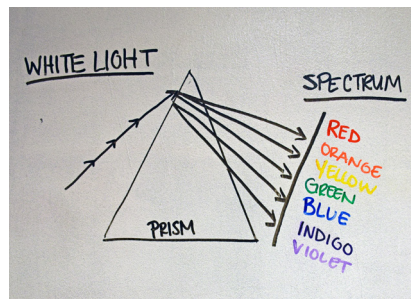 WHITE LIGHT
SPECTRUM
RED
ORANGE
YELLOW
GREEN
BLUE
INDIGO
VIOLET
PRISM